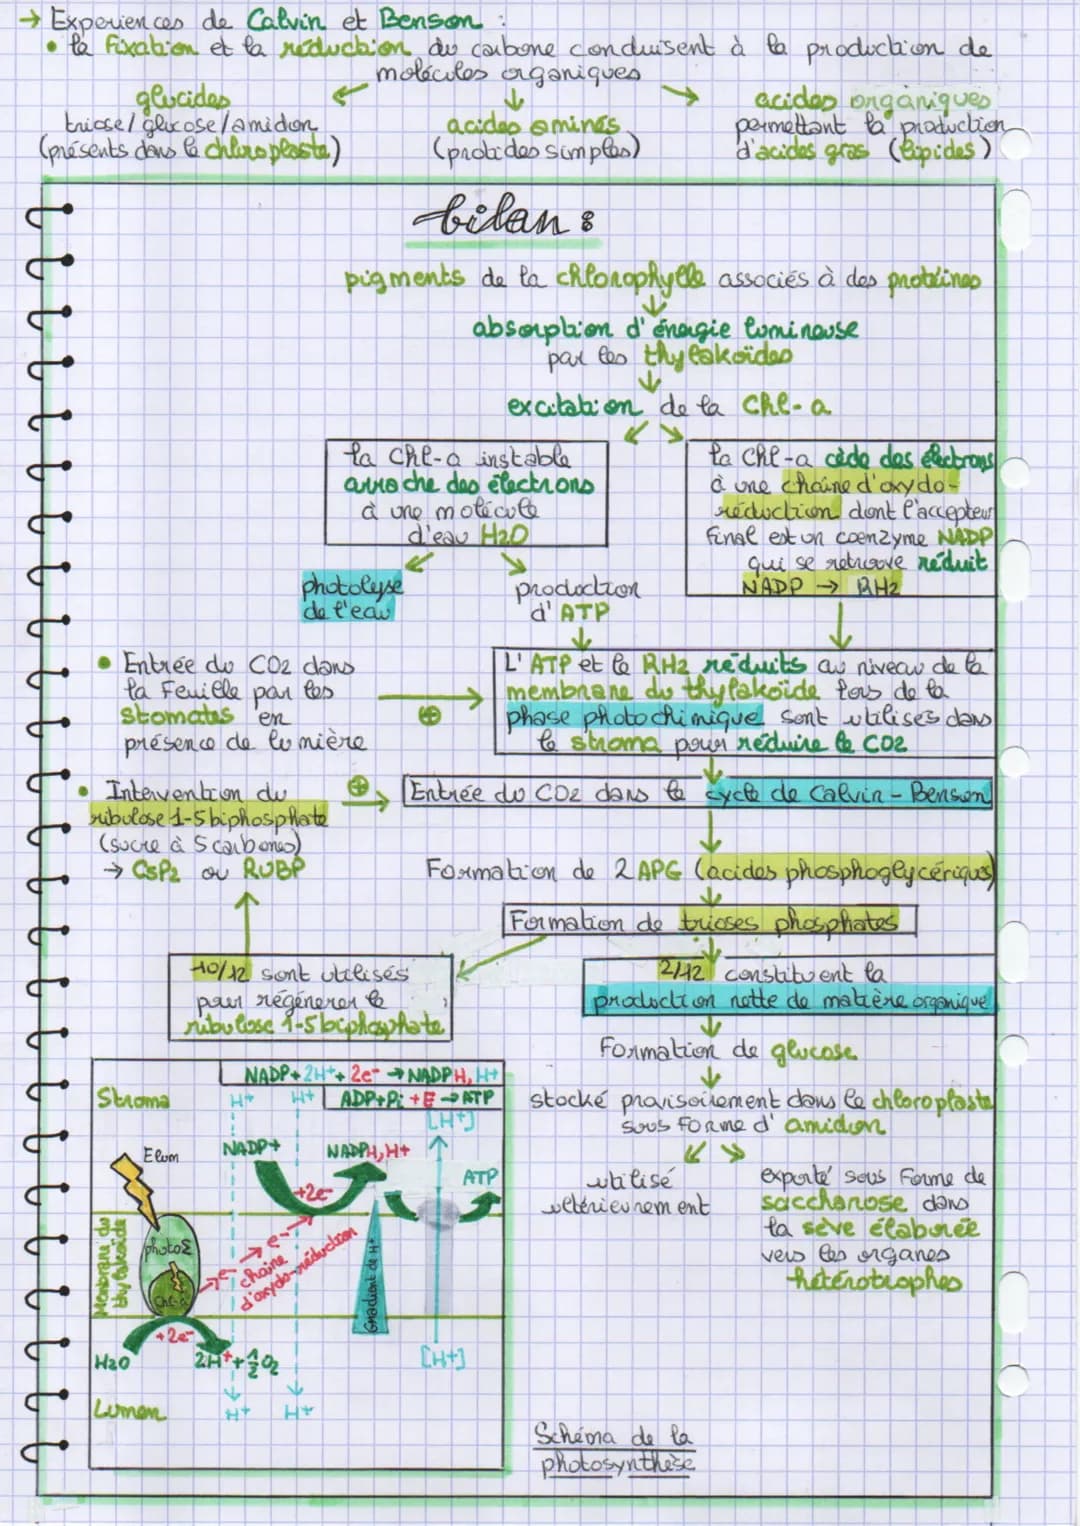 → Experiences de Calvin et Benson :
• la fixation et la réduction du carbone conduisent à la production de
molécules organiques
glucides
triose/glucose/amidon
(présents dans le chloroplaste)
acides aminés
(protides simples)
acides organiques
permettant la production
d'acides gras (lipides)
bilan :
pigments de la chlorophylle associés à des protéines
absorption d'énergie lumineuse
par les thylakoïdes
excitation de la Chl-a
la Chl-a instable
arrache des électrons
à une molécule
d'eau H2O
la Chl-a cède des électrons
à une chaîne d'oxydo-
réduction dont l'accepteur
final est un coenzyme NADP
qui se retrouve réduit
NADP → RH2
photolyse
de l'eau
production
d'ATP
• Entrée du CO2 dans
la feuille par les
stomates en
présence de lumière
L'ATP et le RH2 réduits au niveau de la
membrane du thylakoïde lors de la
phase photochimique sont utilisés dans
le stroma pour réduire le CO2
• Intervention du
ribulose 1-5 biphosphate
(sucre à 5 carbones)
→ C5P2 ou RUBP
Entrée du CO2 dans le cycle de Calvin-Benson
Formation de 2 APG (acides phosphoglycériques)
Formation de trioses phosphates
10/12 sont utilisés
pour régénerer le
ribulose 1-5 biphosphate
2/12 constituent la
production nette de matière organique
Formation de glucose
stocké provisoirement dans le chloroplaste
sous forme d'amidon
utilisé
ultérieurement
exporté sous forme de
saccharose dans
la sève élaborée
vers les organes
hétérotrophes
NADP+2H⁺+2e⁻ → NADPH,H+
ADP+Pi+E → ATP
Stroma
H+ H+
[H+]
Elum
NADP+
NADPH,H+
ATP
+2e-
Membrane du
thylakoïde
photoΣ
Chl-a
e- → e-
chaine
d'oxydo-réduction
Gradient de H+
+2e-
H2O
2H⁺+½O2
[H+]
Lumen
H+ H+
Schéma de la
photosynthèse